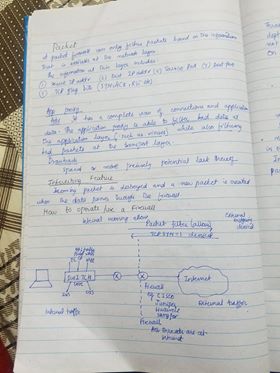 Packet
A packet firewall can only filter packets based on the information
that is available at the network layer.
The information at this layer includes
① Source IP addr ② Dest IP addr ③ Source Port ④ Dest port
⑤ TCP flag bits (SYN, ACK, RST etc)
App proxy
Adv It has a complete view of connections and application
data. The application proxy is able to filter bad data at
the application layer (such as viruses) while also filtering
bad packets at the transport layer.
Drawback
speed or more precisely potential lack thereof.
Interesting Feature
Incoming packet is destroyed and a new packet is created
when the data passes through the firewall
How to operate/use a Firewall
Internal network allow
Packet filter (allow)
TCP SYN=1 denied
SWITCH
Internet
Firewall
of CISCO
Juniper
Huawei
Internal traffic
External traffic
Firewall